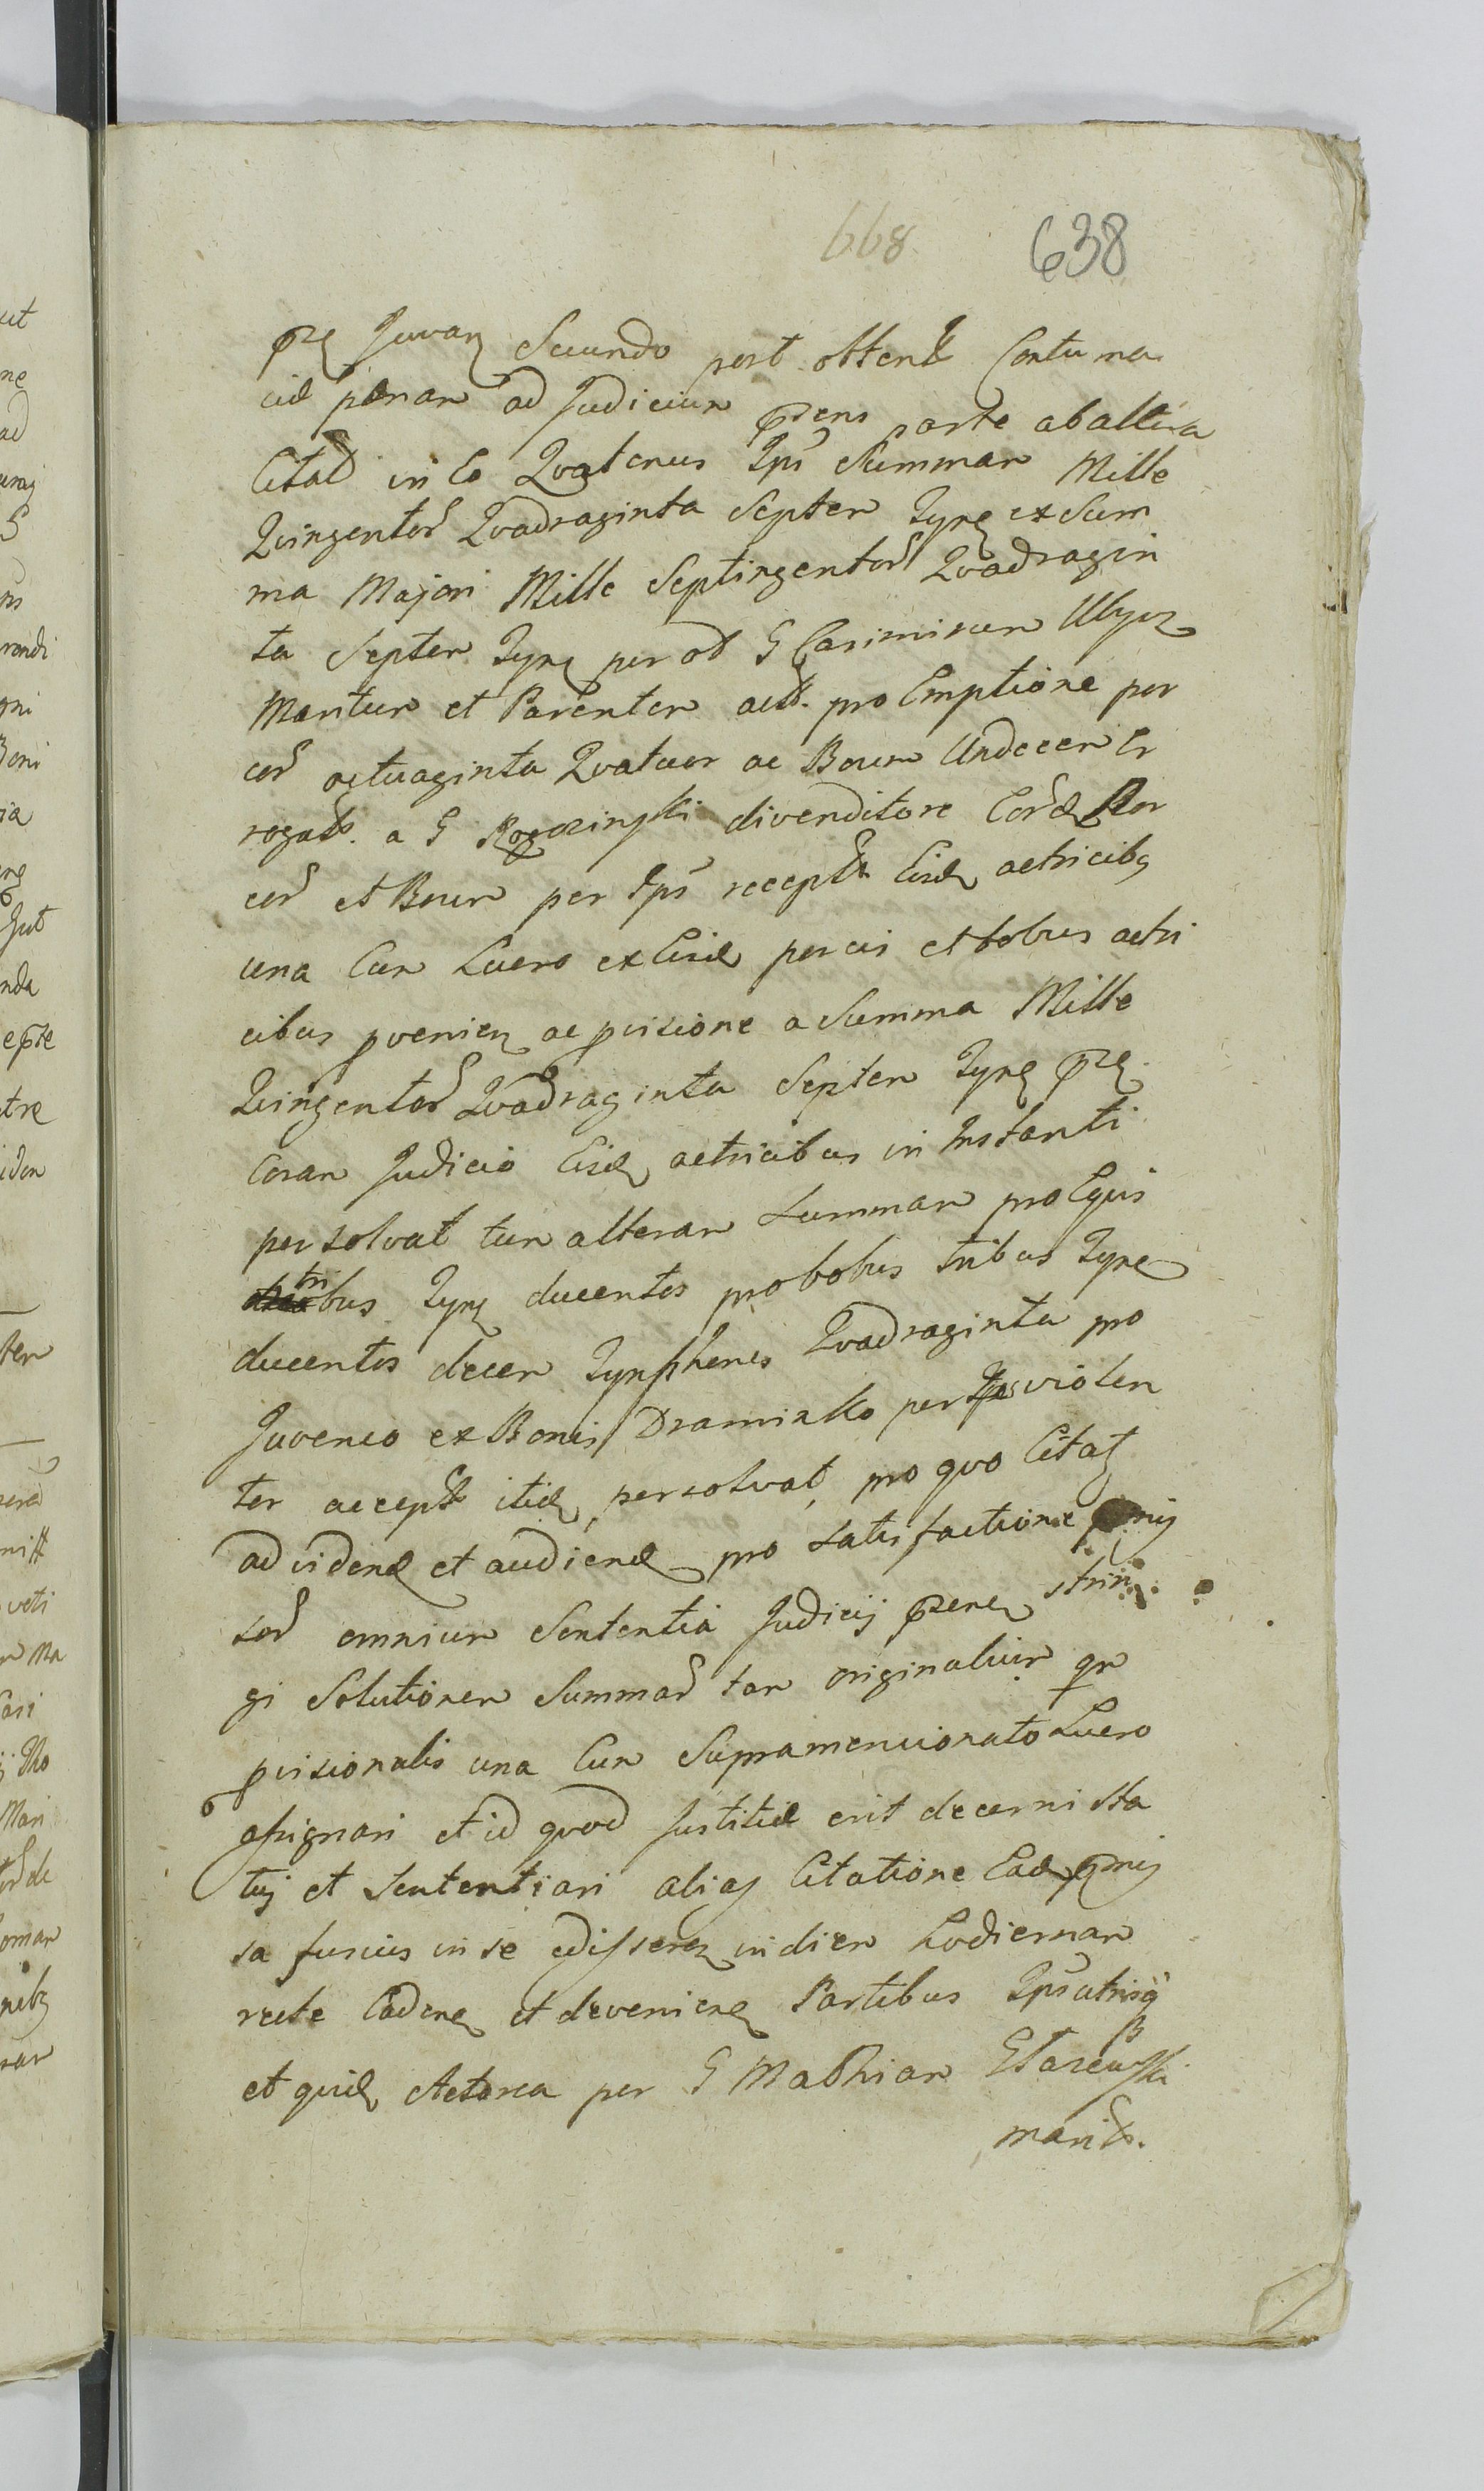 668 638
Secundo post obtent Contuma
ciæ pænam ad Judicium parte ab altera
Citat in eo Quatenus Ips Summam Mille
Quingentor Quadraginta Septem Tynf ex Sum
ma Majori Mille Septingentor Quadragin
ta Septem Tynf per ad G Casimirum
Maritum et Parentem act. pro Emptione por
cor octuaginta Quatuor ac Boum Undecem Er
rogat. a G divenditore Eord Por
cor et Boum per Ips recept Eisd actricibq
una Cum Lucro ex Eisd porcis et bobus actri
cibus pvenien ac pvisione a Summa Mille
Quingentor Quadraginta Septem Tynf
Coram Judicio Eisd actricibus in Instanti
persolvat tum alteram Summam pro Equis
tribus Tynf ducentos pro bobus tribus Tynf
ducentos decem Tynphones Quadraginta pro
Juvenco ex Bonis Dramin Ko per Ips violen
ter accept itid persolvat, pro quo Citat
ad vidend et audiend pro satisfactione pmis
sor omnium Sententia Judicij strin
gi Solutionem Summar tam originalium qm
pvisionalis una Cum Supramencionato Lucro
assignari et id quod Justitiæ erit decerni sta
tuj et Sententiari alias Citatione Ead pmis
sa fusius in se edisseren in diem hodiernam
recte Caden et devenien Partibus Ips utrisq
et quid Actorea per G Mathiam Starcuski
marit.